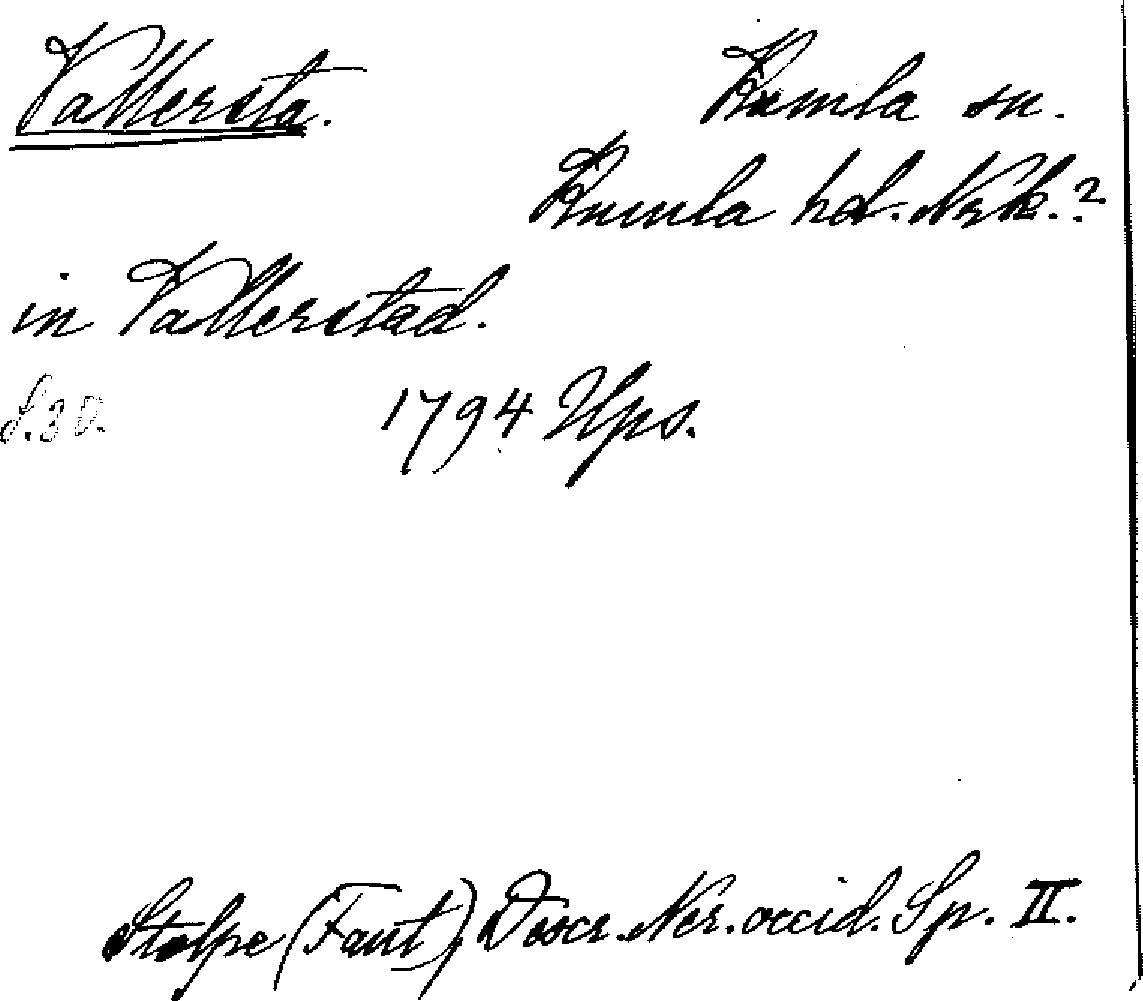 Vallersta.
Kumla sn.
Kumla hd. Nrk.?
in Vallerstad.
S. 30.
1794 Ups.
Stolpe (Fant), Descr. Ner. occid. Sp. II.